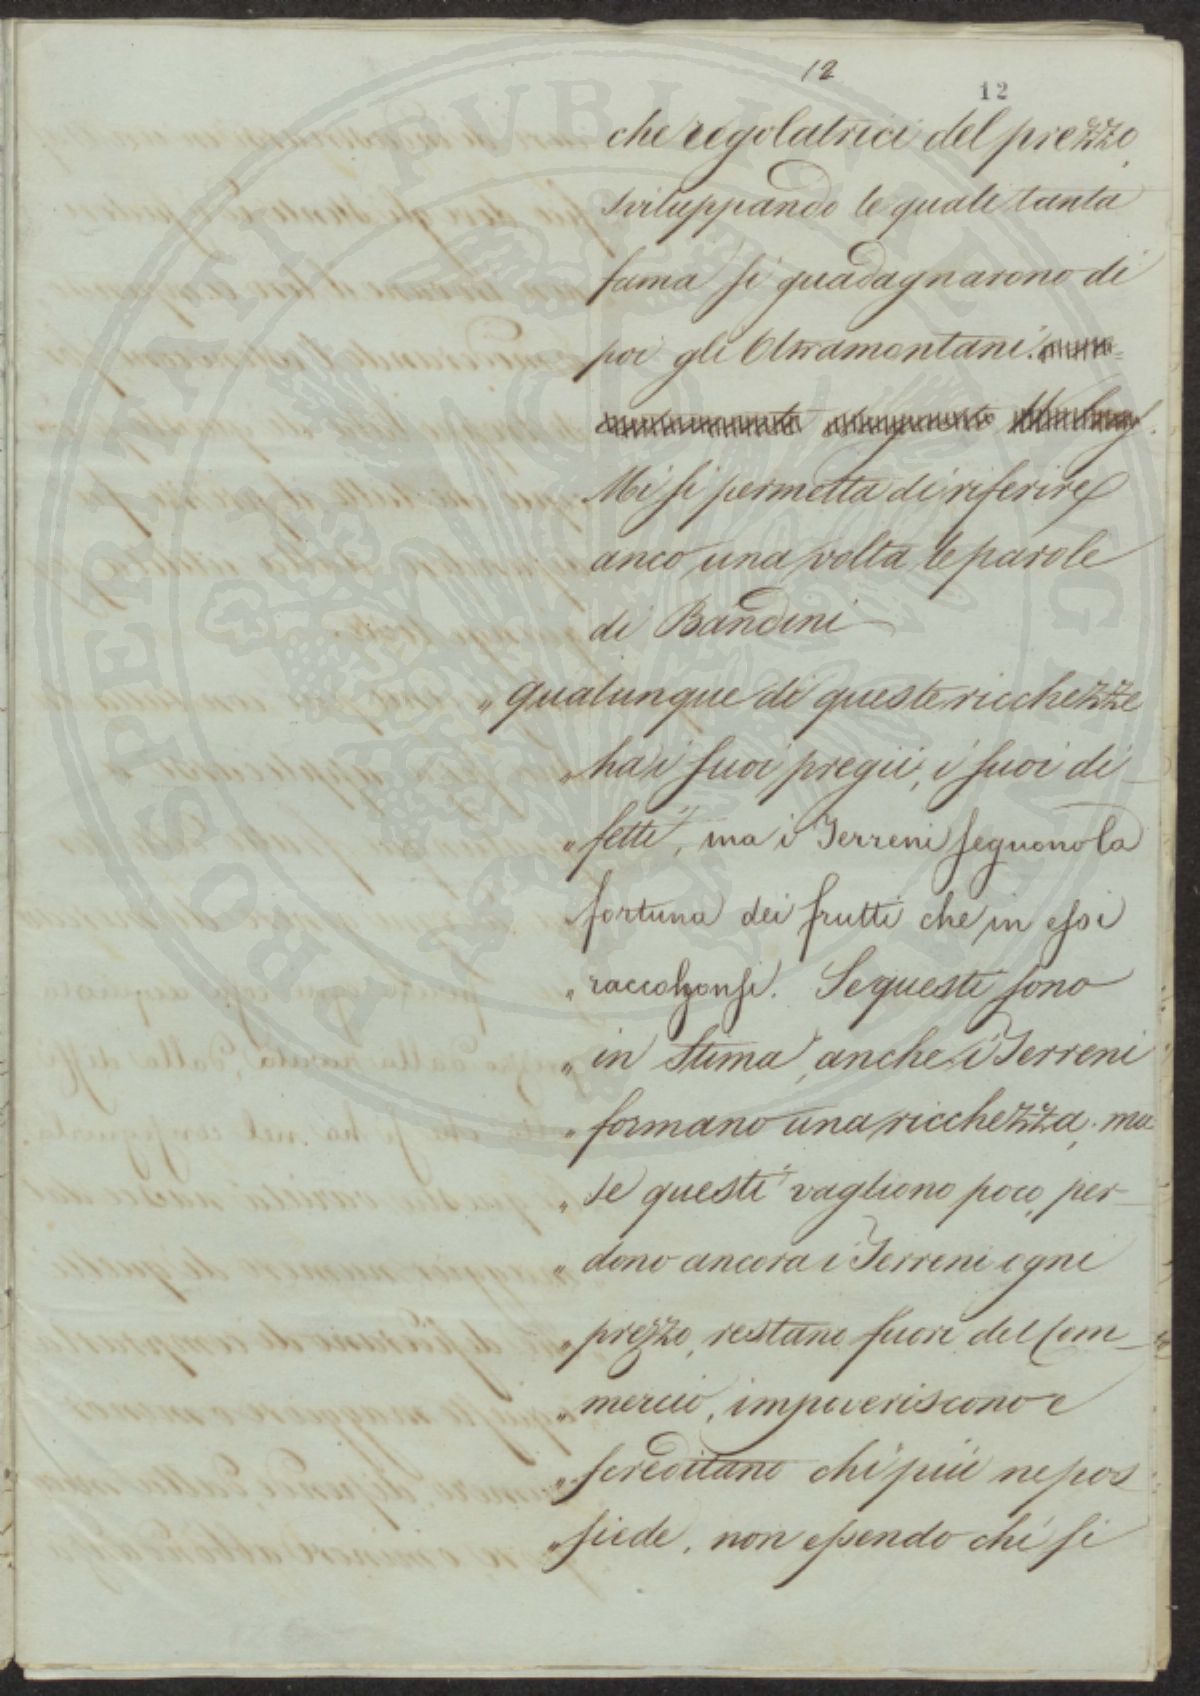 12
12
che regolatrici del prezzo,
sviluppando le quali tanta
fama si guadagnarono di
poi gli Oltramontani.
Mi si permetta di riferire
anco una volta le parole
di Bandini
„ qualunque di queste ricchezze
„ ha i suoi pregii, i suoi di
„ fetti, ma i Terreni seguono la
fortuna dei frutti che in essi
„ raccolgonsi. Se questi sono
„ in stima, anche i Terreni
„ formano una ricchezza; ma
„ se questi vagliono poco, per-
„ dono ancora i Terreni ogni
„ prezzo, restano fuori del Com-
„ mercio, impoveriscono e
„ screditano chi più ne pos
„ siede, non essendo chi si
PROSPERITATI PUBLICAE AUGENDAE